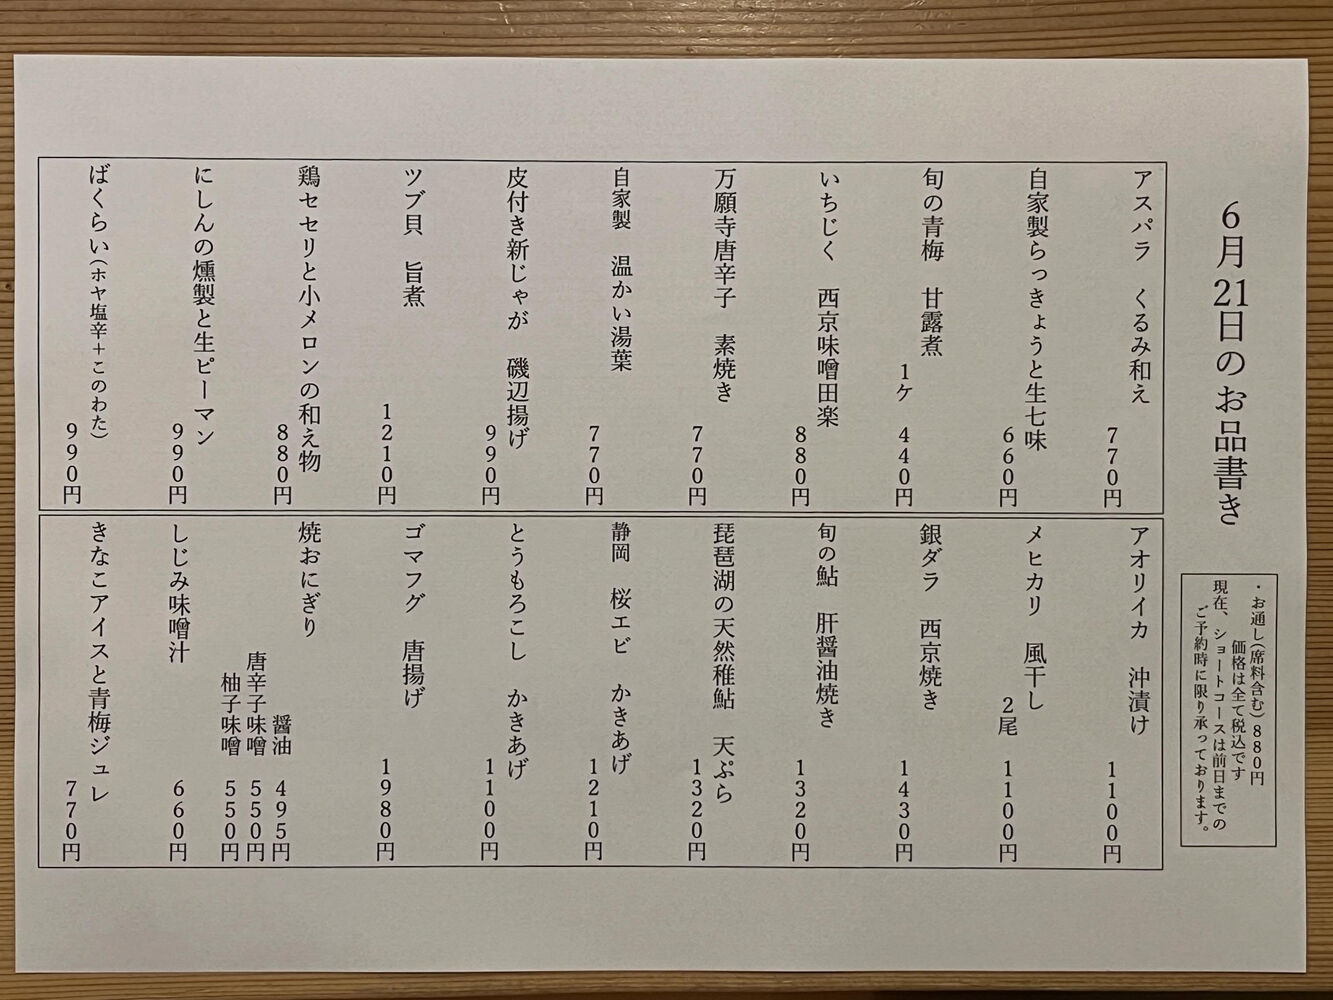 6月21日のお品書き
・お通し(席料含む)880円
価格は全て税込です
現在、ショートコースは前日までの
ご予約時に限り承っております。
アスパラ　くるみ和え
770円
自家製らっきょうと生七味
660円
旬の青梅　甘露煮
1ケ　440円
いちじく　西京味噌田楽
880円
万願寺唐辛子　素焼き
770円
自家製　温かい湯葉
770円
皮付き新じゃが　磯辺揚げ
990円
ツブ貝　旨煮
1210円
鶏セセリと小メロンの和え物
880円
にしんの燻製と生ピーマン
990円
ばくらい(ホヤ塩辛+このわた)
990円
アオリイカ　沖漬け
1100円
メヒカリ　風干し
2尾　1100円
銀ダラ　西京焼き
1430円
旬の鮎　肝醤油焼き
1320円
琵琶湖の天然稚鮎　天ぷら
1320円
静岡　桜エビ　かきあげ
1210円
とうもろこし　かきあげ
1100円
ゴマフグ　唐揚げ
1980円
焼おにぎり
醤油　495円
唐辛子味噌　550円
柚子味噌　550円
しじみ味噌汁
660円
きなこアイスと青梅ジュレ
770円